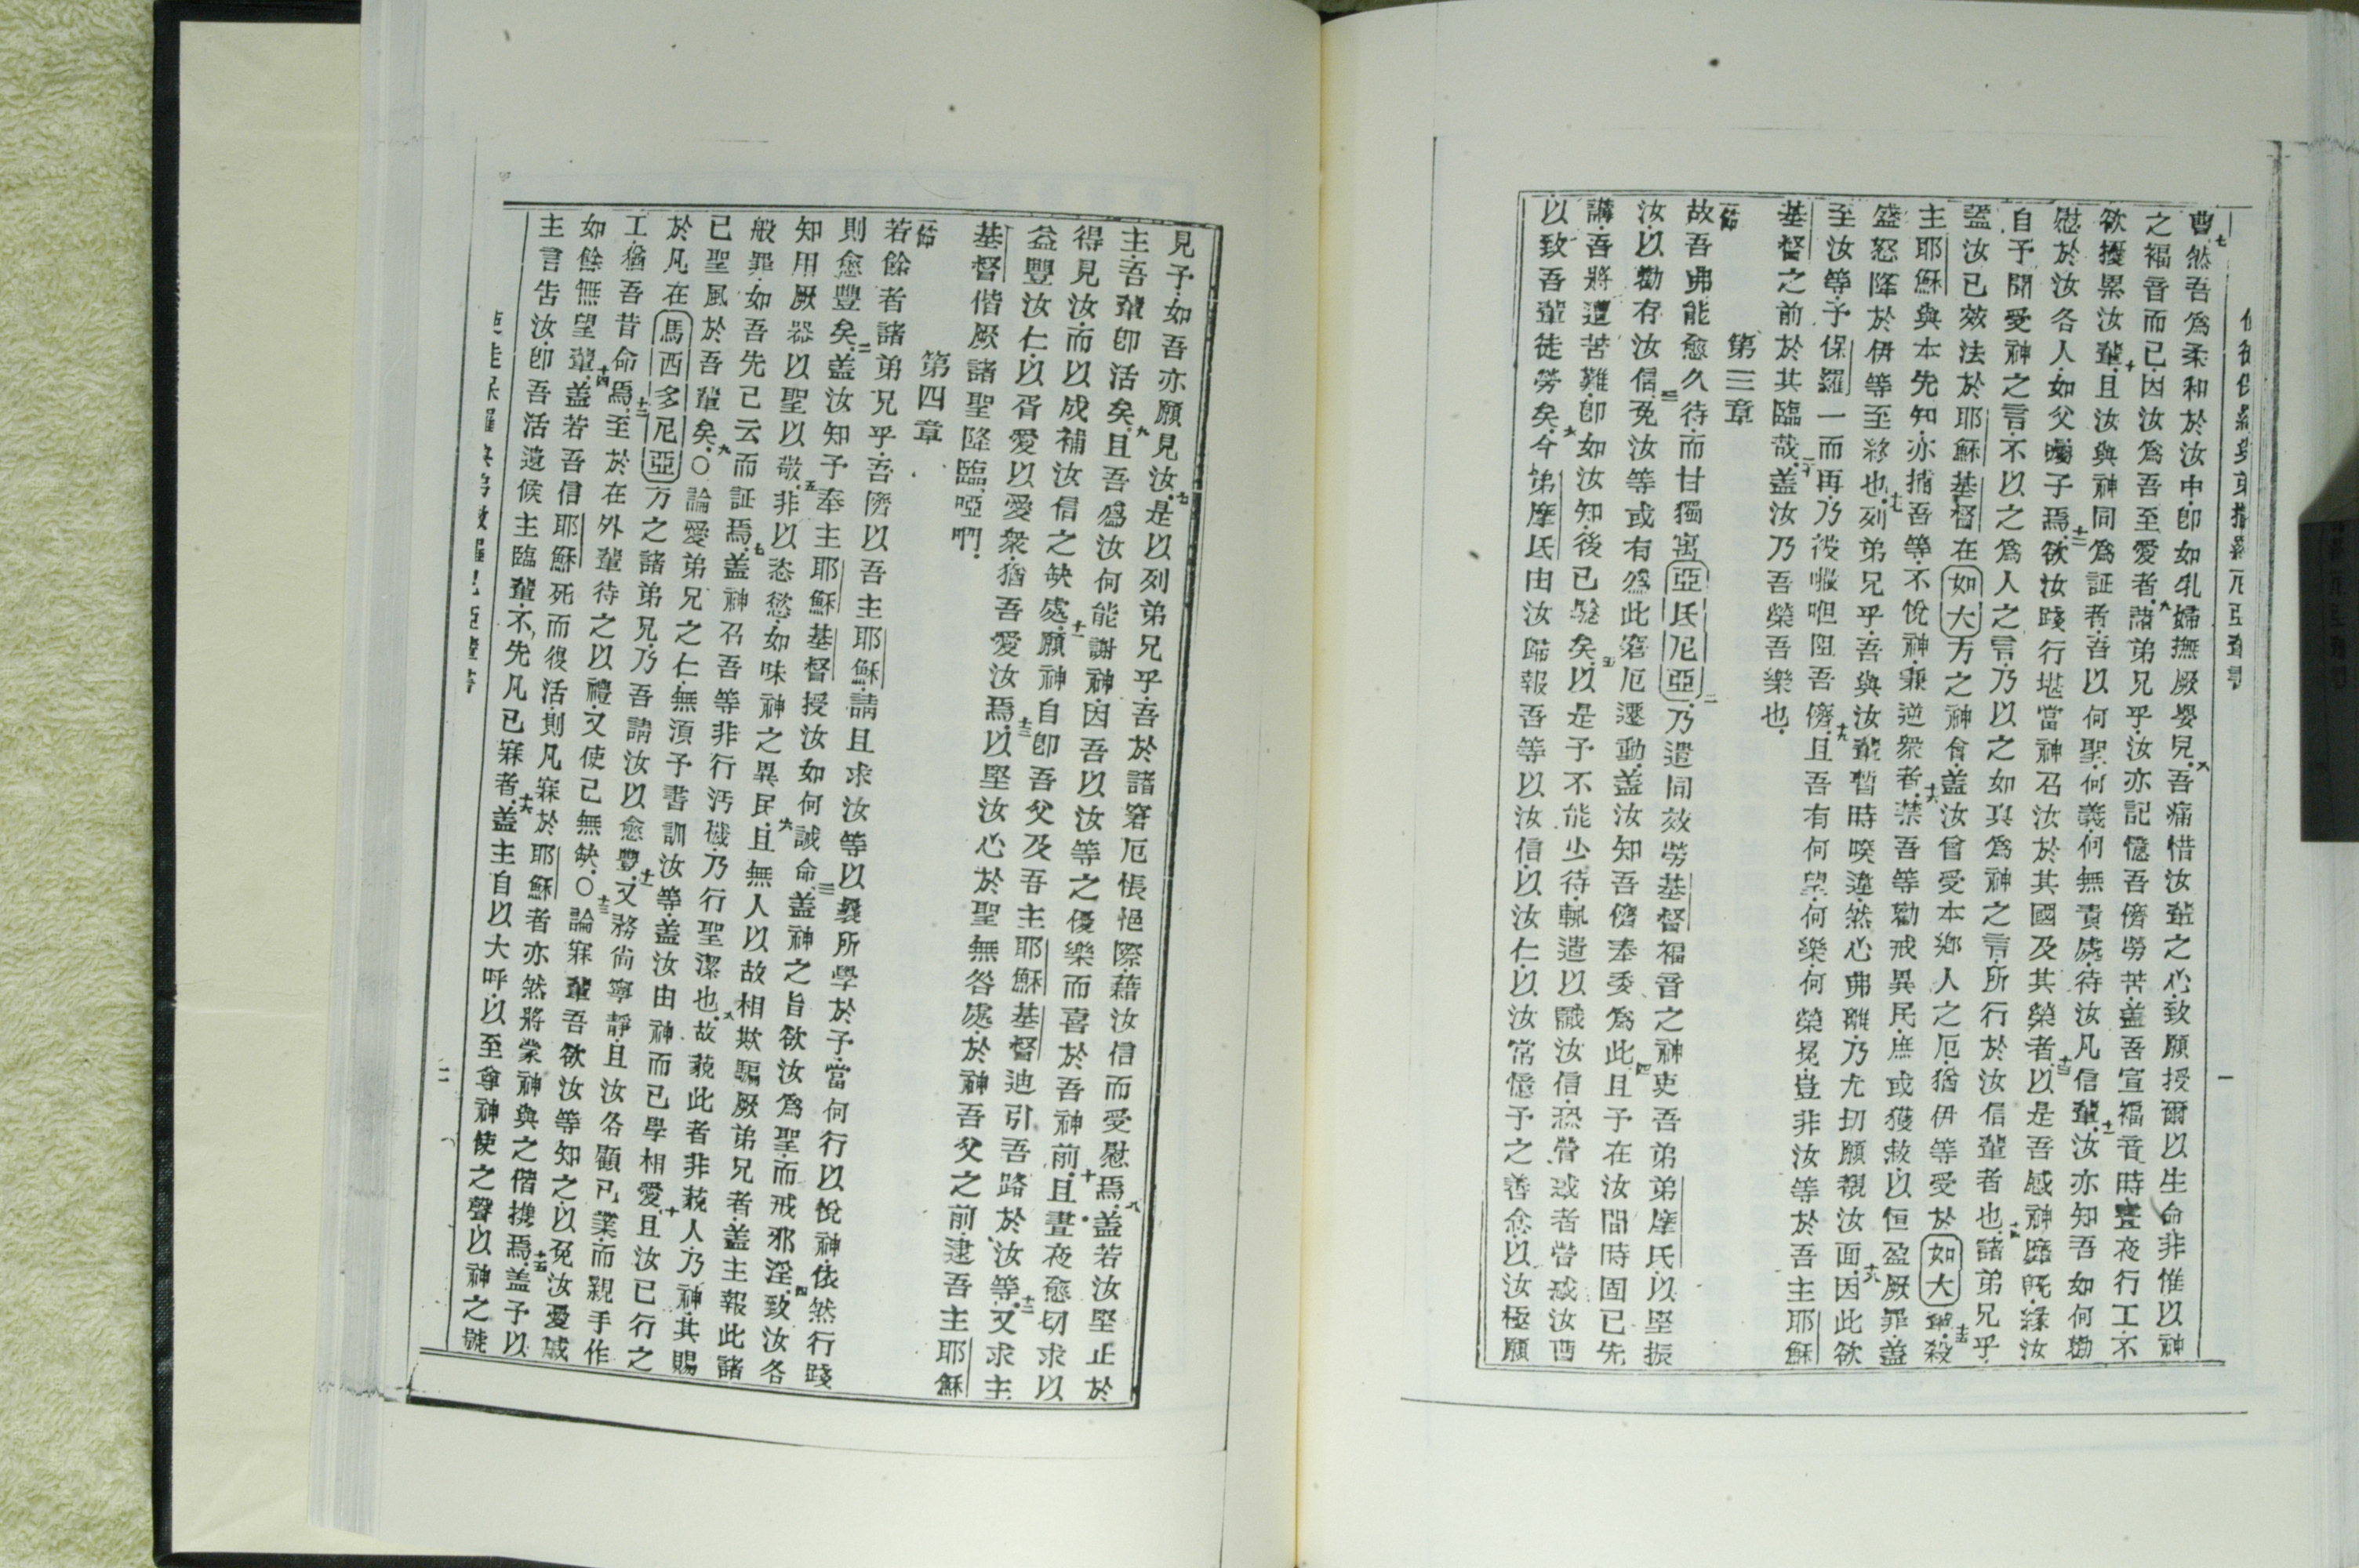 曹七然吾為柔和於汝中即如乳婦撫厥嬰兒八吾痛惜汝輩之心致願授爾以生命非惟以神
之福音而已因汝為吾至愛者九諸弟兄乎汝亦記憶吾儕勞苦盖吾宣福音時晝夜行工不
欲擾累汝輩十且汝與神同為証者吾以何聖何義何無責處待汝凡信輩十一汝亦知吾如何勸
慰於汝各人如父囑子焉十二欲汝踐行堪當神召汝於其國及其榮者十三以是吾感神靡旣緣汝
自予聞愛神之言不以之為人之言乃以之如真為神之言所行於汝信輩者也十四諸弟兄乎
盖汝已效法於耶穌基督在如大方之神會盖汝曾受本鄉人之厄猶伊等受於如大輩十五殺
主耶穌與本先知亦捕吾等不悅神兼逆衆者十六禁吾等勸戒異民庶或獲救以恒盈厥罪盖
盛怒降於伊等至終也十七列弟兄乎吾與汝輩暫時暌違然心弗離乃尤切願覩汝面十八因此欲
至汝等予保羅一而再乃彼㘔呾阻吾儕十九且吾有何望何樂何榮冕豈非汝等於吾主耶穌
基督之前於其臨哉二十盖汝乃吾榮吾樂也
第三章
一節故吾弗能愈久待而甘獨寓亞氐尼亞二乃遣同效勞基督福音之神吏吾弟弟摩氐以堅振
汝以勸存汝信三免汝等或有為此窘厄遷動盖汝知吾儕奉委為此四且予在汝間時固已先
講吾將遭苦難即如汝知後已騐矣五以是予不能少待輒遣以識汝信恐嘗惑者嘗惑汝曹
以致吾輩徒勞矣六今弟摩氐由汝歸報吾等以汝信以汝仁以汝常憶予之善念以汝極願
見予如吾亦願見汝七是以列弟兄乎吾於諸窘厄悵悒際藉汝信而受慰焉八盖若汝堅止於
主吾輩即活矣九且吾為汝何能謝神因吾以汝等之優樂而喜於吾神前十且晝夜愈切求以
得見汝而以成補汝信之缺處十一願神自即吾父及吾主耶穌基督迪引吾路於汝等十二又求主
益豐汝仁以胥愛以愛衆猶吾愛汝焉十三以堅汝心於聖無咎處於神吾父之前逮吾主耶穌
基督偕厥諸聖降臨啞啊
第四章
一節若餘者諸弟兄乎吾儕以吾主耶穌請且求汝等以曩所學於予當何行以悅神依然行踐
則愈豐矣二盖汝知予奉主耶穌基督授汝如何誡命三盖神之旨欲汝為聖而戒邪淫四致汝各
知用厥器以聖以敬五非以恣慾如味神之異民六且無人以故相欺騙厥弟兄者盖主報此諸
般罪如吾先已云而証焉七盖神召吾等非行汚穢乃行聖潔也八故藐此者非藐人乃神其賜
已聖風於吾輩矣九○論愛弟兄之仁無湏予書訓汝等盖汝由神而已學相愛十且汝已行之
於凡在馬西多尼亞方之諸弟兄乃吾請汝以愈豐十一又務尚寧靜且汝各顧己業而親手作
工猶吾昔命焉十二至於在外輩待之以禮又使己無缺十三○論寐輩吾欲汝等知之以免汝憂戚
如餘無望輩十四盖若吾信耶穌死而復活則凡寐於耶穌者亦然將蒙神與之偕携焉十五盖予以
主言告汝即吾活遺候主臨輩不先凡已寐者十六盖主自以大呼以至尊神使之聲以神之號
二